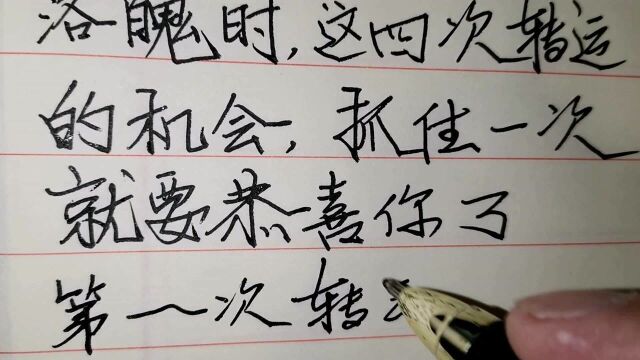 落魄时,这四次转运
的机会,抓住一次
就要恭喜你了
第一次转